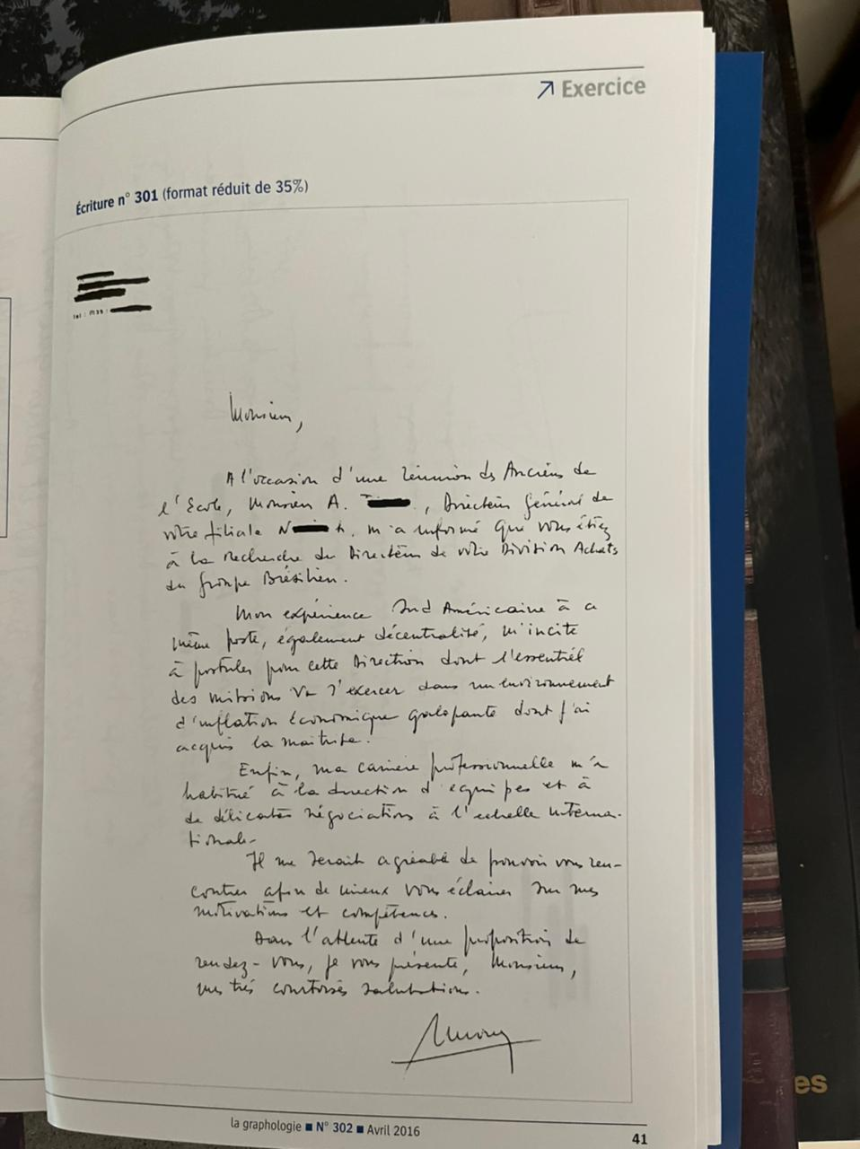 ↗ Exercice
Écriture n° 301 (format réduit de 35%)
Monsieur,
A l'occasion d'une réunion des Anciens de
l'Ecole, Monsieur A. , Directeur Général de
votre filiale N k. m'a informé que vous étiez
à la recherche du Directeur de votre Division Achats
du Groupe Brésilien.
Mon expérience Sud Américaine à ce
même poste, également décentralisé, m'incite
à postuler pour cette Direction dont l'essentiel
des missions va s'exercer dans un environnement
d'inflation économique galopante dont j'ai
acquis la maîtrise.
Enfin, ma carrière professionnelle m'a
habitué à la direction d'équipes et à
de délicates négociations à l'échelle interna-
tionale.
Il me serait agréable de pouvoir vous ren-
contrer afin de mieux vous éclairer sur mes
motivations et compétences.
Dans l'attente d'une proposition de
rendez-vous, je vous présente, Monsieur,
mes très courtoises salutations.
la graphologie ■ N° 302 ■ Avril 2016
41
es